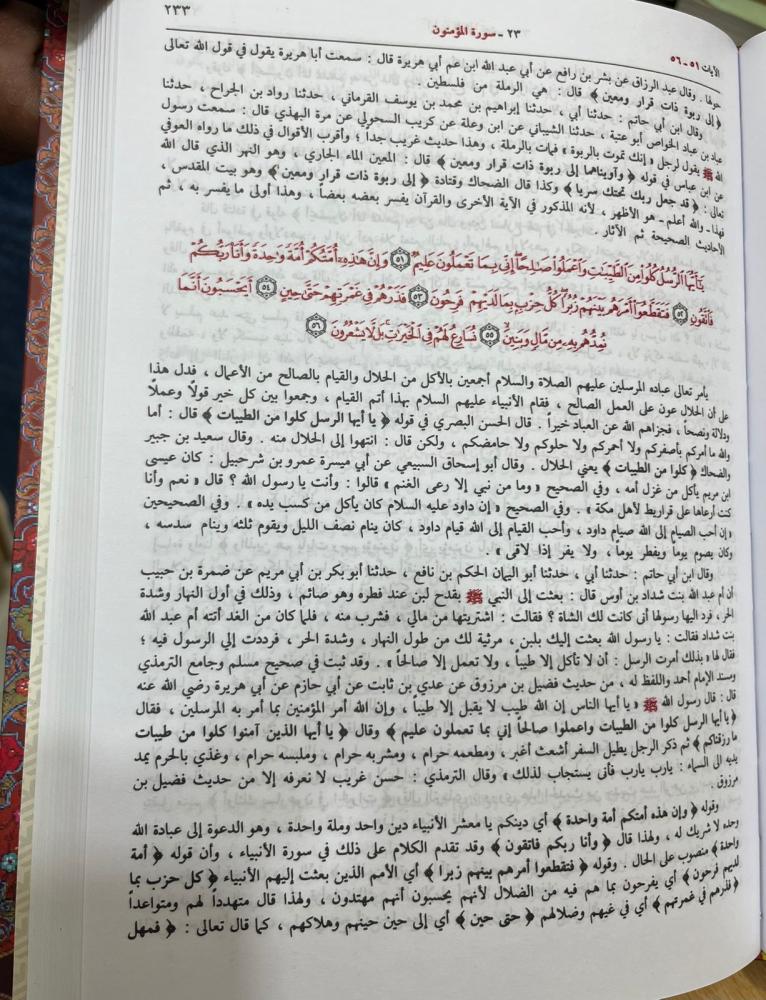 ٢٣٣
٢٣ - سورة المؤمنون
الآيات ٥١ - ٥٦
حولها . وقال عبد الرزاق عن بشر بن رافع عن أبي عبد الله ابن عم أبي هريرة قال : سمعت أبا هريرة يقول في قول الله تعالى
﴿ إلى ربوة ذات قرار ومعين ﴾ قال : هي الرملة من فلسطين .
وقال ابن أبي حاتم : حدثنا أبي ، حدثنا إبراهيم بن محمد بن يوسف القرماني ، حدثنا رواد بن الجراح ، حدثنا
عباد بن عباد الخواص أبو عتبة ، حدثنا الشيباني عن ابن وعلة عن كريب السحولي عن مرة البهذي قال : سمعت رسول
الله ﷺ يقول لرجل « إنك تموت بالربوة » فمات بالرملة ، وهذا حديث غريب جداً ؛ وأقرب الأقوال في ذلك ما رواه العوفي
عن ابن عباس في قوله ﴿ وآويناهما إلى ربوة ذات قرار ومعين ﴾ قال : المعين الماء الجاري ، وهو النهر الذي قال الله
تعالى : ﴿ قد جعل ربك تحتك سريا ﴾ وكذا قال الضحاك وقتادة ﴿ إلى ربوة ذات قرار ومعين ﴾ وهو بيت المقدس ،
فهذا ـ والله أعلم ـ هو الأظهر ، لأنه المذكور في الآية الأخرى والقرآن يفسر بعضه بعضاً ، وهذا أولى ما يفسر به ، ثم
الأحاديث الصحيحة ثم الآثار .
يَٰٓأَيُّهَا ٱلرُّسُلُ كُلُوا۟ مِنَ ٱلطَّيِّبَٰتِ وَٱعْمَلُوا۟ صَٰلِحًا إِنِّى بِمَا تَعْمَلُونَ عَلِيمٌ ٥١ وَإِنَّ هَٰذِهِۦٓ أُمَّتُكُمْ أُمَّةً وَٰحِدَةً وَأَنَا۠ رَبُّكُمْ
فَٱتَّقُونِ ٥٢ فَتَقَطَّعُوٓا۟ أَمْرَهُم بَيْنَهُمْ زُبُرًا كُلُّ حِزْبٍۭ بِمَا لَدَيْهِمْ فَرِحُونَ ٥٣ فَذَرْهُمْ فِى غَمْرَتِهِمْ حَتَّىٰ حِينٍ ٥٤ أَيَحْسَبُونَ أَنَّمَا
نُمِدُّهُم بِهِۦ مِن مَّالٍ وَبَنِينَ ٥٥ نُسَارِعُ لَهُمْ فِى ٱلْخَيْرَٰتِ بَل لَّا يَشْعُرُونَ ٥٦
يأمر تعالى عباده المرسلين عليهم الصلاة والسلام أجمعين بالأكل من الحلال والقيام بالصالح من الأعمال ، فدل هذا
على أن الحلال عون على العمل الصالح ، فقام الأنبياء عليهم السلام بهذا أتم القيام ، وجمعوا بين كل خير قولاً وعملاً
ودلالة ونصحاً ، فجزاهم الله عن العباد خيراً . قال الحسن البصري في قوله ﴿ يا أيها الرسل كلوا من الطيبات ﴾ قال : أما
والله ما أمركم بأصفركم ولا أحمركم ولا حلوكم ولا حامضكم ، ولكن قال : انتهوا إلى الحلال منه . وقال سعيد بن جبير
والضحاك ﴿ كلوا من الطيبات ﴾ يعني الحلال . وقال أبو إسحاق السبيعي عن أبي ميسرة عمرو بن شرحبيل : كان عيسى
ابن مريم يأكل من غزل أمه ، وفي الصحيح « وما من نبي إلا رعى الغنم » قالوا : وأنت يا رسول الله ؟ قال « نعم وأنا
كنت أرعاها على قراريط لأهل مكة » . وفي الصحيح « إن داود عليه السلام كان يأكل من كسب يده » . وفي الصحيحين
« إن أحب الصيام إلى الله صيام داود ، وأحب القيام إلى الله قيام داود ، كان ينام نصف الليل ويقوم ثلثه وينام سدسه ،
وكان يصوم يوماً ويفطر يوماً ، ولا يفر إذا لاقى » .
وقال ابن أبي حاتم : حدثنا أبي ، حدثنا أبو اليمان الحكم بن نافع ، حدثنا أبو بكر بن أبي مريم عن ضمرة بن حبيب
أن أم عبد الله بنت شداد بن أوس قال : بعثت إلى النبي ﷺ بقدح لبن عند فطره وهو صائم ، وذلك في أول النهار وشدة
الحر ، فرد اليها رسولها أنى كانت لك الشاة ؟ فقالت : اشتريتها من مالي ، فشرب منه ، فلما كان من الغد أتته أم عبد الله
بنت شداد فقالت : يا رسول الله بعثت إليك بلبن ، مرثية لك من طول النهار ، وشدة الحر ، فرددت إلي الرسول فيه ؛
فقال لها « بذلك أمرت الرسل : أن لا تأكل إلا طيباً ، ولا تعمل إلا صالحاً » . وقد ثبت في صحيح مسلم وجامع الترمذي
ومسند الإمام أحمد واللفظ له ، من حديث فضيل بن مرزوق عن عدي بن ثابت عن أبي حازم عن أبي هريرة رضي الله عنه
قال : قال رسول الله ﷺ « يا أيها الناس إن الله طيب لا يقبل إلا طيباً ، وإن الله أمر المؤمنين بما أمر به المرسلين ، فقال
﴿ يا أيها الرسل كلوا من الطيبات واعملوا صالحاً إني بما تعملون عليم ﴾ وقال ﴿ يا أيها الذين آمنوا كلوا من طيبات
ما رزقناكم ﴾ ثم ذكر الرجل يطيل السفر أشعث أغبر ، ومطعمه حرام ، ومشربه حرام ، وملبسه حرام ، وغذي بالحرم يمد
يديه الى السماء : يارب يارب فأنى يستجاب لذلك » وقال الترمذي : حسن غريب لا نعرفه إلا من حديث فضيل بن
مرزوق .
وقوله ﴿ وإن هذه أمتكم أمة واحدة ﴾ أي دينكم يا معشر الأنبياء دين واحد وملة واحدة ، وهو الدعوة إلى عبادة الله
وحده لا شريك له ، ولهذا قال ﴿ وأنا ربكم فاتقون ﴾ وقد تقدم الكلام على ذلك في سورة الأنبياء ، وأن قوله ﴿ أمة
واحدة ﴾ منصوب على الحال . وقوله ﴿ فتقطعوا أمرهم بينهم زبرا ﴾ أي الأمم الذين بعثت إليهم الأنبياء ﴿ كل حزب بما
لديهم فرحون ﴾ أي يفرحون بما هم فيه من الضلال لأنهم يحسبون أنهم مهتدون ، ولهذا قال متهدداً لهم ومتواعداً
﴿ فذرهم في غمرتهم ﴾ أي في غيهم وضلالهم ﴿ حتى حين ﴾ أي إلى حين حينهم وهلاكهم ، كما قال تعالى : ﴿ فمهل